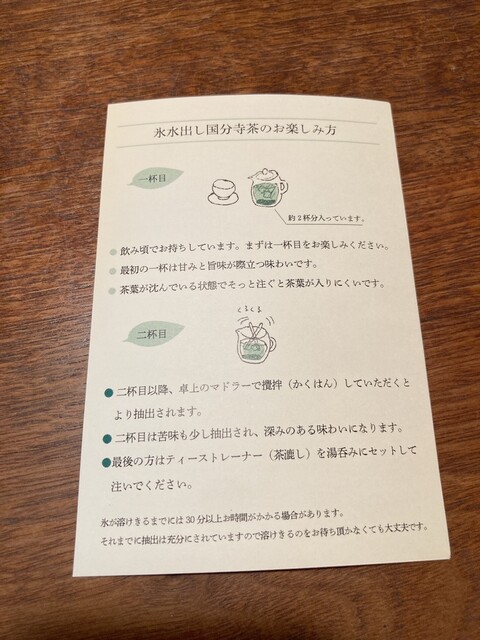 氷水出し国分寺茶のお楽しみ方
一杯目
約2杯分入っています。
飲み頃でお持ちしています。まずは一杯目をお楽しみください。
最初の一杯は甘みと旨味が際立つ味わいです。
茶葉が沈んでいる状態でそっと注ぐと茶葉が入りにくいです。
くるくる
二杯目
二杯目以降、卓上のマドラーで攪拌（かくはん）していただくと
より抽出されます。
二杯目は苦味も少し抽出され、深みのある味わいになります。
最後の方はティーストレーナー（茶漉し）を湯呑みにセットして
注いでください。
氷が溶けきるまでには30分以上お時間がかかる場合があります。
それまでに抽出は充分にされていますので溶けきるのをお待ち頂かなくても大丈夫です。